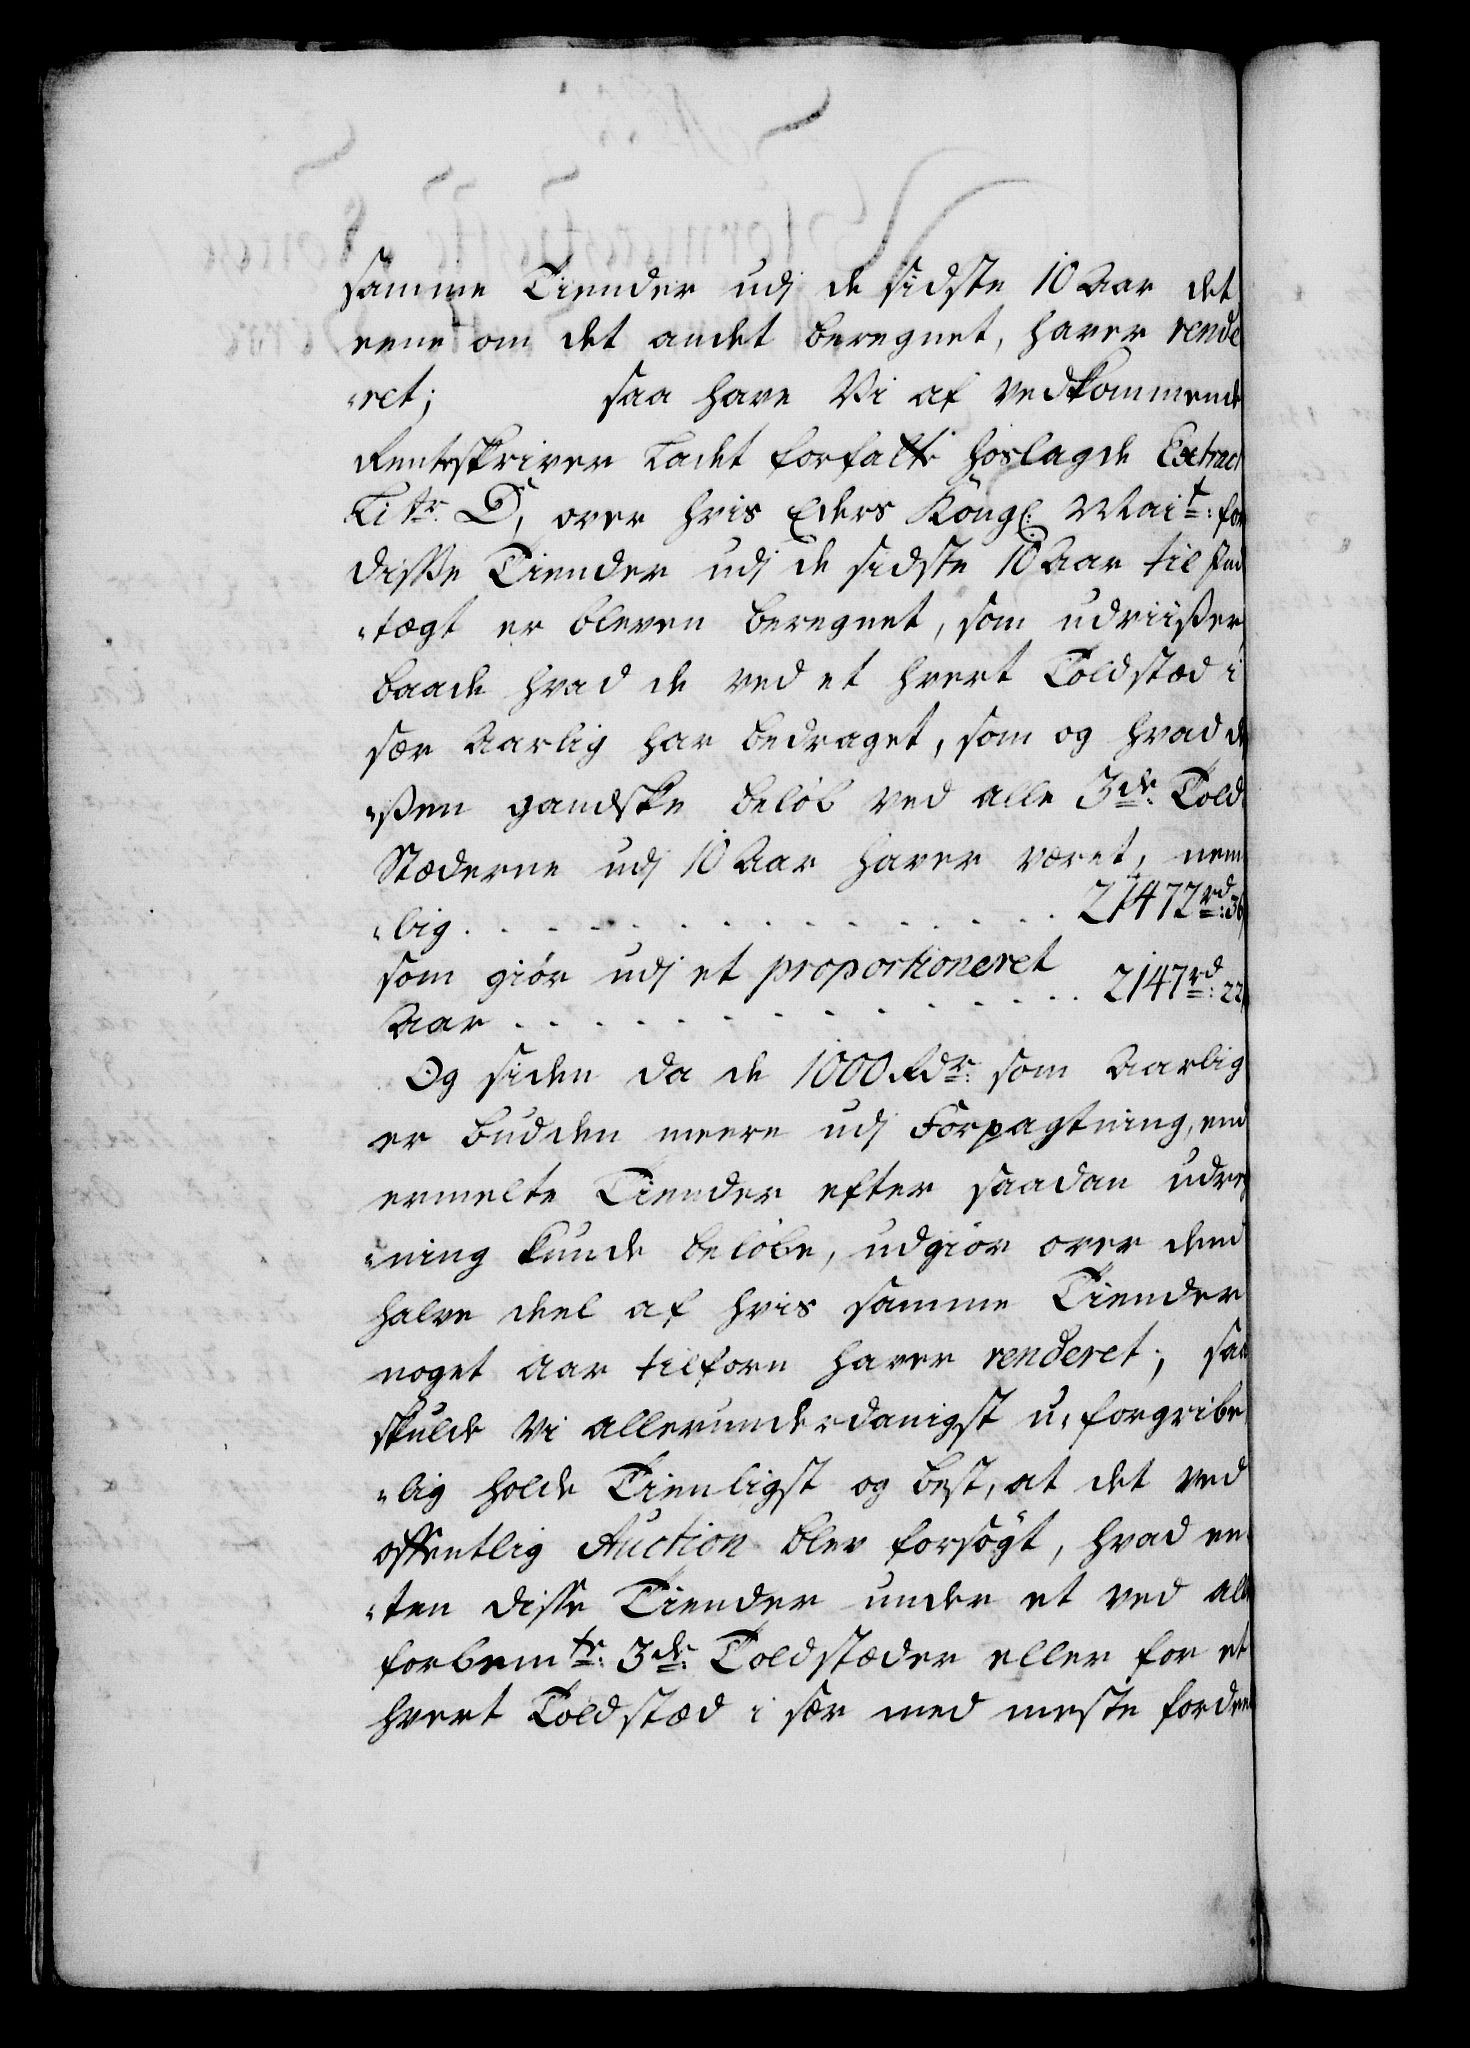 samme Tiender udj de sidste 10 Aar det
eene om det andet beregnet, haver rende
-ret; saa have Vi af vedkommende
Renteskriver ladet forfatte hoslagde Extract
Litr. D, over hvis Eders Kongl. Mait: for
disse Tiender udj de sidste 10 Aar til Ind
-tægt er bleven beregnet, som udviiser
baade hvad de ved et hvert Toldstæd i
sær Aarlig har bedraget, som og hvad de
-ßen gandske beløb ved alle 3de Told
Stæderne udj 10 Aar haver været, nem
-lig . . . . . . . . . . . . 21472rd: 36
som giør udj et proportioneret
Aar . . . . . . . . . . . . 2147rd: 22
Og siden da de 1000 Rdr: som Aarlig
er budden meere udj Forpagtning, end
ermelte Tiender efter saadan udreg
-ning kunde beløbe, udgiør over dend
halve deel af hvis samme Tiender
noget aar tilforn haver renderet; saa
skulde Vi allerunderdanigst u-forgribe
-lig holde Tienligst og best, at det ved
offentlig Auction blev forsøgt, hvad en
-ten disse Tiender under et ved alle
forbemte: 3de: Toldstæder eller for et
hvert Toldstæd i sær med meste fordeel